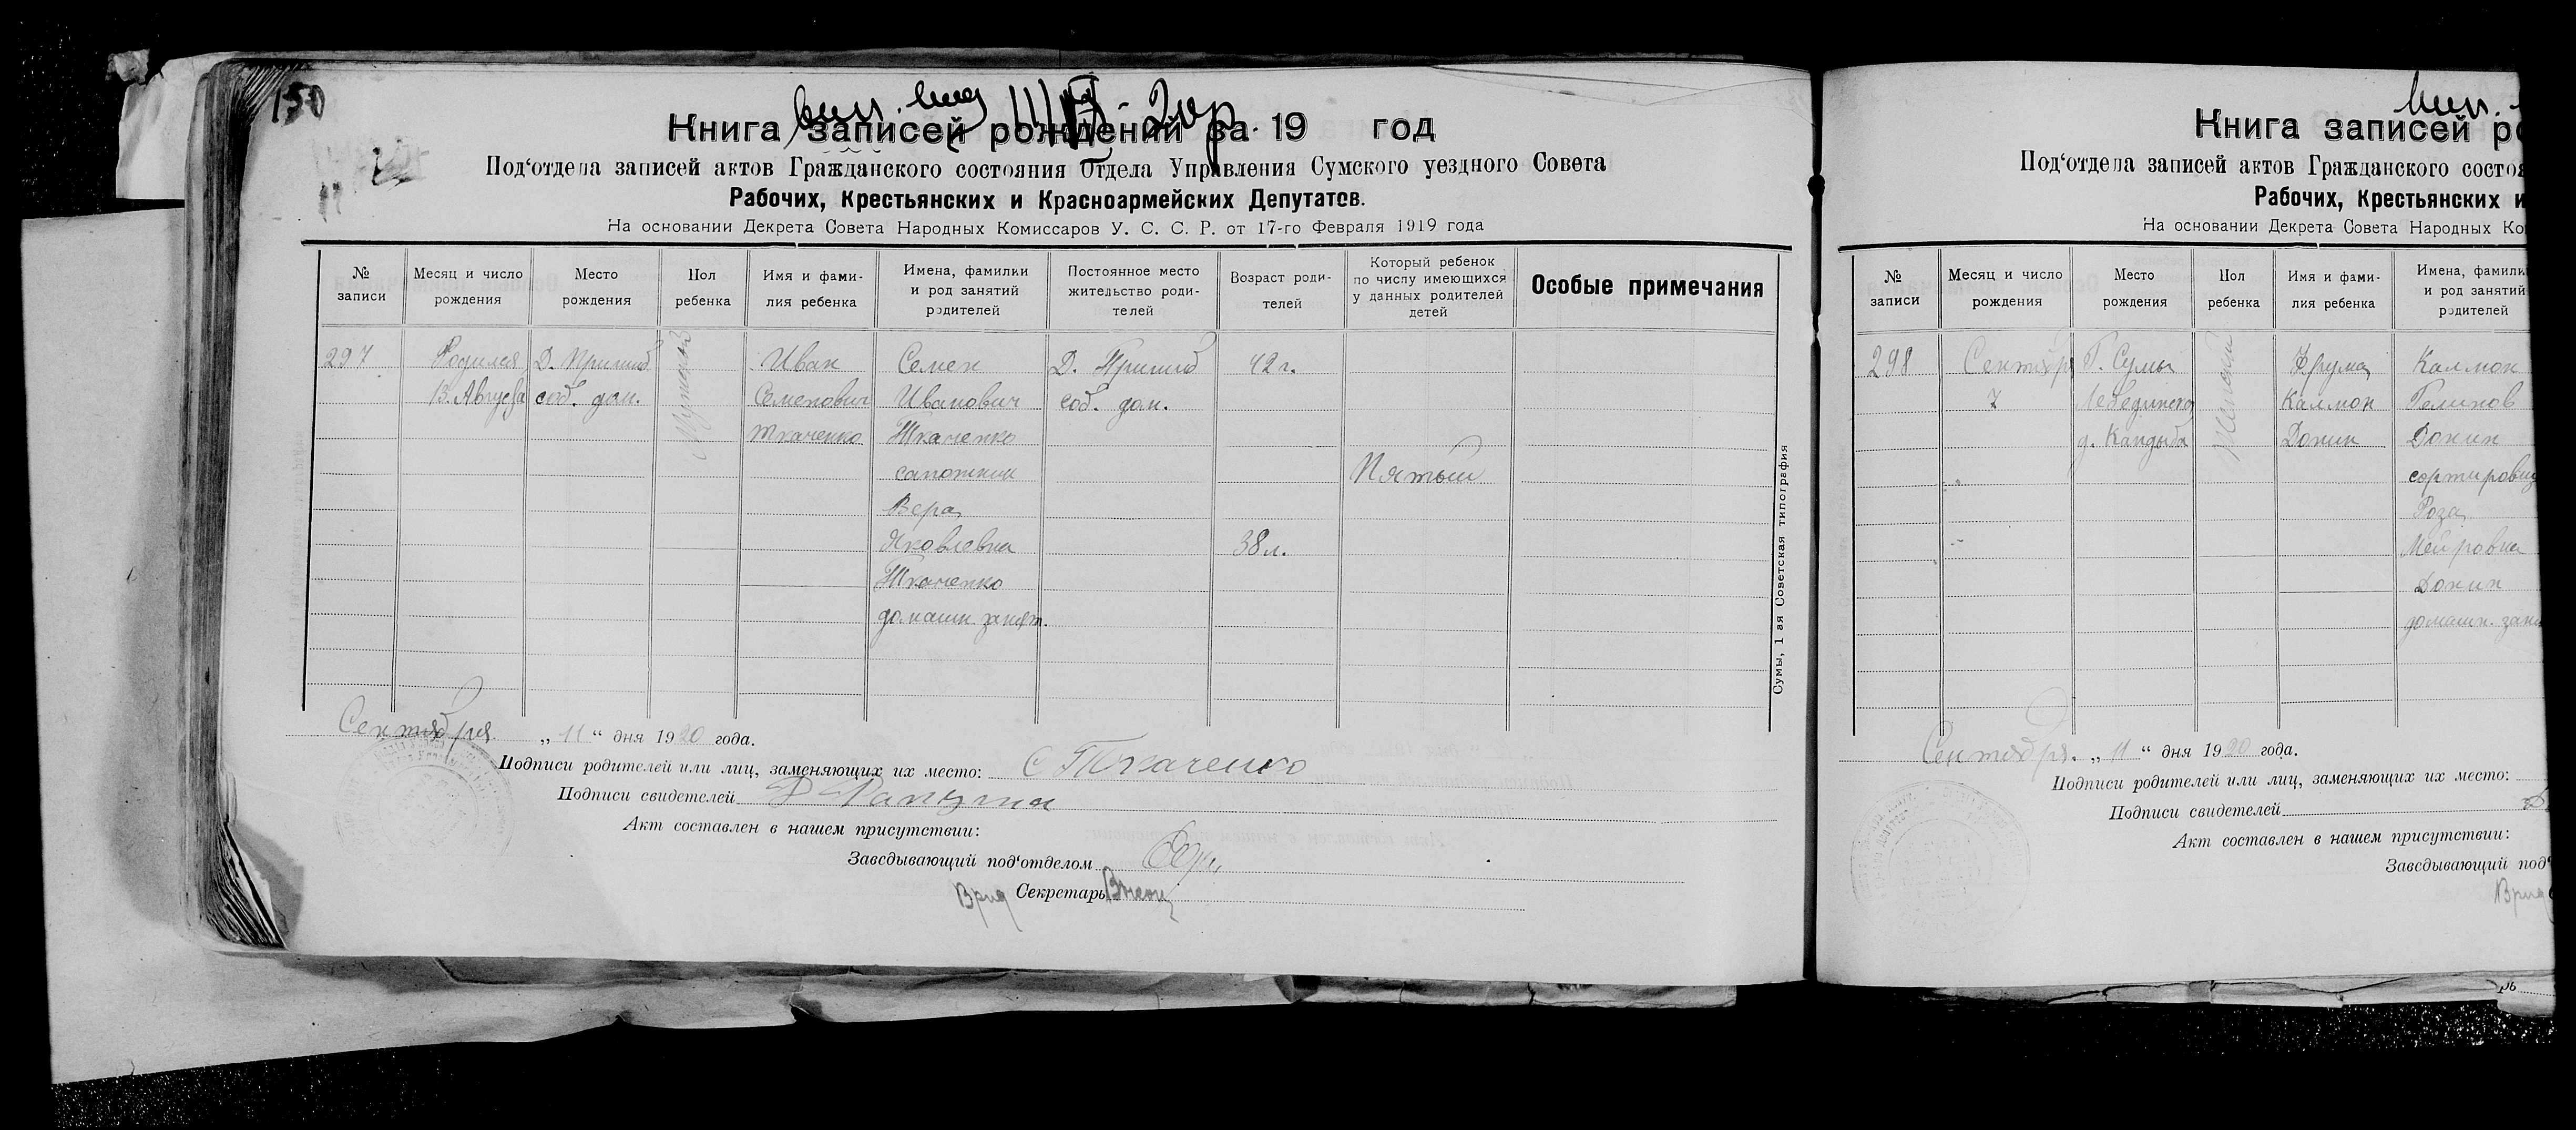 150
Книга записей рождений за 19 год
Под‘отдела записей актов Гражданского состояния Отдела Управления Сумского уездного Совета
Рабочих, Крестьянских и Красноармейских Депутатов.
На основании Декрета Совета Народных Комиссаров У. С. С. Р. от 17-го Февраля 1919 года
№ записи
Месяц и число рождения
Место рождения
Пол ребенка
Имя и фами-
лия ребенка
Имена, фамилии
и род занятий
родителей
Постоянное место
жительство роди-
телей
Возраст роди-
телей
Который ребенок
по числу имеющихся
у данных родителей
детей
Особые примечания
297
Родился
13. Августа
соб. дом.
Мужской
Иван
Семенович
Ткаченко
Семен
Иванович
Ткаченко
сапожник
Вера
Яковлевна
Ткаченко
домашн. занят.
соб. дом.
42 г.
38 л.
Пятый
Сумы, 1 ая Советская типография
Сентября „ 11 “ дня 1920 года.
Подписи родителей или лиц, заменяющих их место: С Ткаченко
Подписи свидетелей
Акт составлен в нашем присутствии:
Заведывающий под‘отделом
Врид Секретарь
Книга записей ро
Под‘отдела записей актов Гражданского состоя
Рабочих, Крестьянских и
На основании Декрета Совета Народных Ко
№ записи
Месяц и число рождения
Место рождения
Пол ребенка
Имя и фами-
лия ребенка
Имена, фамилии
и род занятий
родителей
298
Сентябр
7
Г. Сумы
д. Кандыба
Женский
Фрума
Калмон
Донин
Калмон
Донин
сортировщ
Роза
Мейровна
Донин
домашн. зан
Сентября. „ 11 “ дня 1920 года.
Подписи родителей или лиц, заменяющих их место:
Подписи свидетелей
Акт составлен в нашем присутствии:
Заведывающий под‘
Врид